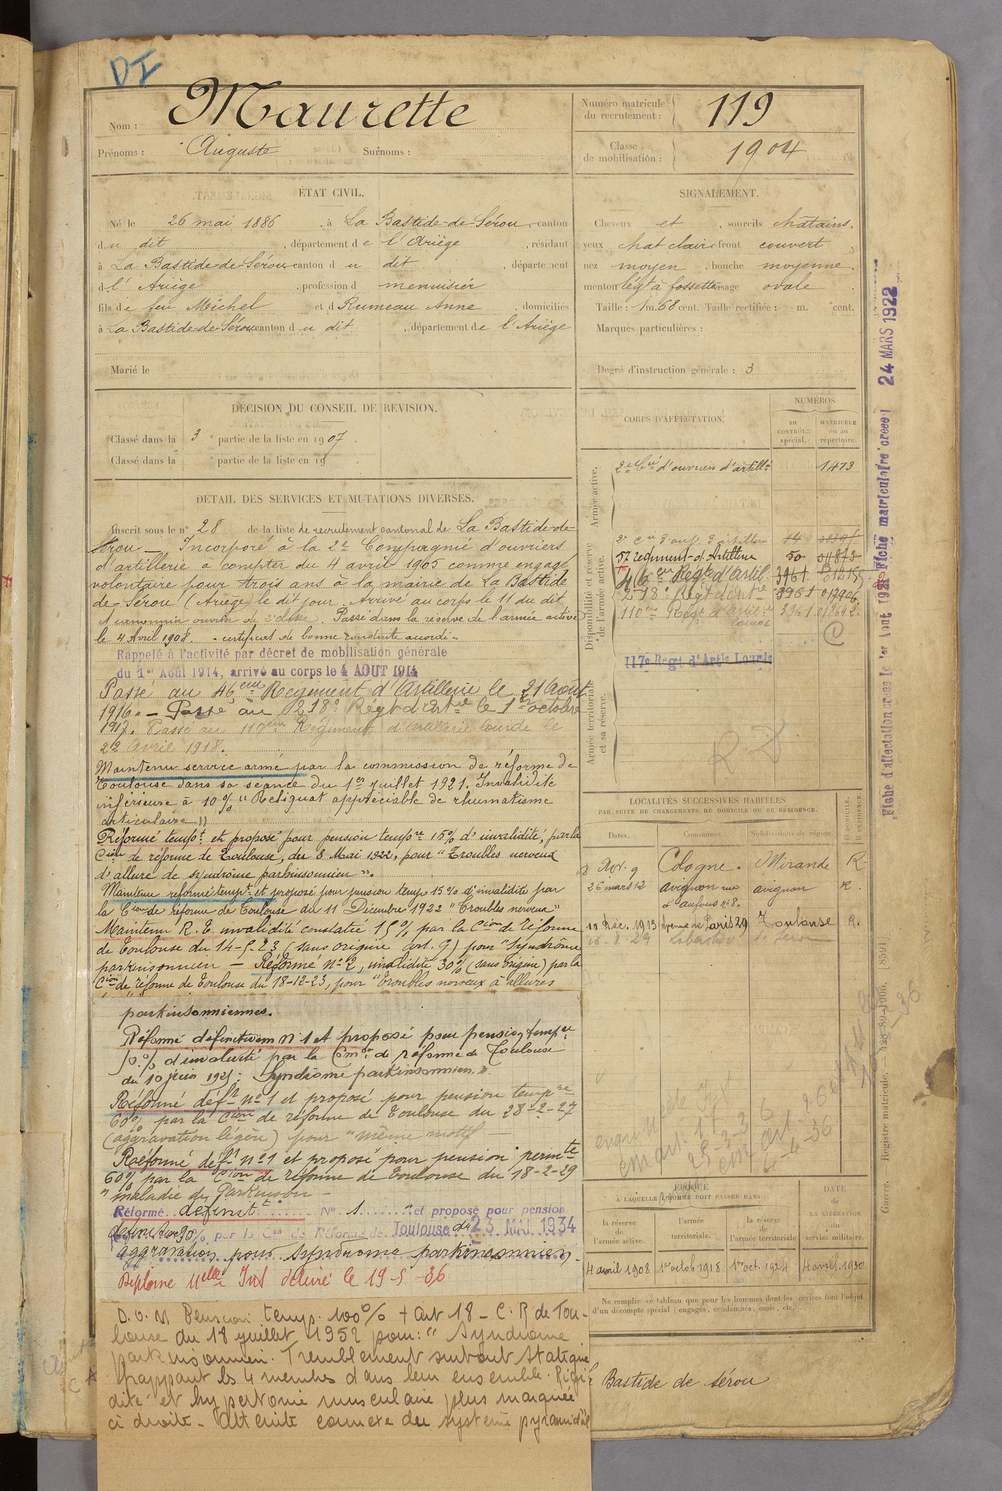 DI
Nom : Maurette
Prénoms : Auguste Surnoms :
Numéro matricule du recrutement : 119
Classe de mobilisation : 1904
ÉTAT CIVIL.
Né le 26 mai 1886, à La Bastide-de-Sérou, canton
du dit, département de l'Ariège, résidant
à La Bastide-de-Sérou canton du dit, département
d l'Ariège, profession d menuisier
fils de feu Michel et d Rumeau Anne, domiciliés
à La Bastide-de-Sérou canton du dit, département de l'Ariège
Marié le
SIGNALEMENT.
Cheveux et, sourcils châtains,
yeux chat clair front couvert,
nez moyen, bouche moyenne,
menton légt à fossette visage ovale
Taille : 1m. 68 cent. Taille rectifiée : m. cent.
Marques particulières :
Degré d'instruction générale : 3
DÉCISION DU CONSEIL DE REVISION.
Classé dans la 3e partie de la liste en 1907.
Classé dans la partie de la liste en 19
CORPS D'AFFECTATION.
NUMÉROS
AU CONTRÔLE spécial.
MATRICULE ou au répertoire.
Armée active.
2e Cie d'ouvriers d'artillie 1473
Disponibilité et réserve de l'armée active.
57 régiment d'Artillerie 50
46em Régt d'Artil. 3961
218e Régt d'Artie 3961
110em Régt d'Artil. Lourde 3961
C
117e Régt d'Artie Lourde
Armée territoriale et sa réserve.
R D
DÉTAIL DES SERVICES ET MUTATIONS DIVERSES.
Inscrit sous le n° 28 de la liste de recrutement cantonal de La Bastide-de-
Sérou — Incorporé à la 2e Compagnie d'ouvriers
d'artillerie à compter du 4 avril 1905 comme engagé
volontaire pour trois ans à la mairie de La Bastide
de Sérou (Ariège) le dit jour. Arrivé au corps le 11 du dit
et ouvrier de 2e classe. Passé dans la réserve de l'armée active
le 4 Avril 1908. - certificat de bonne conduite accordé -
Rappelé à l'activité par décret de mobilisation générale
du 1er Août 1914, arrivé au corps le 4 AOUT 1914
Passé au 46em Régiment d'Artillerie le 21 Août
1916. - Passé au 218e Régt d'Artie le 1er octobre
1917. Passé au 110em Régiment d'Artillerie lourde le
22 avril 1918.
Maintenu service armé par la commission de réforme de
Toulouse dans sa séance du 1er juillet 1921. Invalidité
inférieure à 10% "Reliquat appréciable de rhumatisme
articulaire"
Réformé tempt et proposé pour pension tempre 15% d'invalidité, par la
Cion de réforme de Toulouse, du 8 Mai 1922, pour "Troubles nerveux
d'allure de syndrôme parkinsonnien".
Maintenu réformé tempt et proposé pour pension temp 15% d'invalidité par
la Cion de réforme de Toulouse du 11 Décembre 1922 "Troubles nerveux"
Maintenu R. T. invalidité constatée 15% par la Cion de réforme
de Toulouse du 14-5-23 (sans origine art. 9) pour "Syndrôme
parkinsonnien — Réformé N° 2, invalidité 30% (sans origine) par la
Cion de réforme de Toulouse du 18-12-23, pour "Troubles nerveux à allures
parkinsonniennes.
Réformé définitivem. n° 1 et proposé pour pension tempre
d'invalidité par la Comon de réforme de Toulouse
du 10 juin 1925 : Syndrôme parkinsonnien."
Réformé déft n° 1 et proposé pour pension tempre
60% par la Cion de réforme de Toulouse du 28-2-27
(aggravation légère) pour "même motif"
Réformé déft n° 1 et proposé pour pension permte
60% par la Cion de réforme de Toulouse du 18-2-29
"maladie de Parkinson -
Réformé définitt N° 1 et proposé pour pension
90% par la Cion de Réforme de Toulouse du 23 MAI 1934
aggravation pour syndrome parkinsonnien.
Diplôme délivré le 19-5-36
D.O.M. Pension temp. 100% + art 18 - C.R de Tou-
louse du 18 juillet 1952 pour : "Syndrome
parkinsonnien. Tremblement surtout statique
frappant les 4 membres dans leur ensemble. Rigi-
dité et hypertonie musculaire plus marquée
à droite - du système pyramidal
LOCALITÉS SUCCESSIVES HABITÉES
PAR SUITE DE CHANGEMENTS DE DOMICILE OU DE RÉSIDENCE.
Dates. Communes. Subdivisions de région. D. DOMICILE. R. RÉSIDENCE.
Nov. 9 Cologne. Mirande R.
26 mars 12 Avignon rue avignon R.
10 Déc. 1913 Paris 29 Toulouse R.
ÉPOQUE
À LAQUELLE L'HOMME DOIT PASSER DANS
la réserve de l'armée active.
l'armée territoriale.
la réserve de l'armée territoriale
DATE de LA LIBÉRATION du service militaire.
4 avril 1908
1er octob 1918
1er oct. 1924
4 avril 1930
Ne remplir ce tableau que pour les hommes dont les services font l'objet
d'un décompte spécial (engagés, condamnés, omis, etc.)
Bastide de Sérou
Fiche d'affectation créée le 1er Août 1921 Fiche matriculaire créée le 24 MARS 1922
Guerre. Registre matricule.